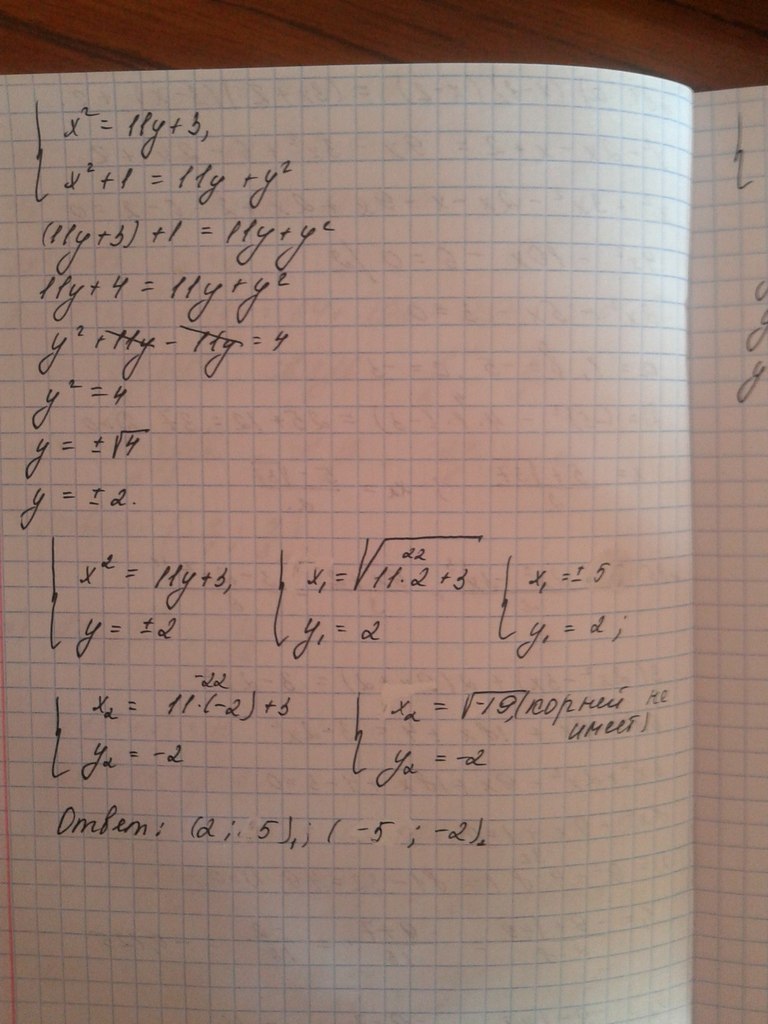 x² = 11y + 3,
x² + 1 = 11y + y²
(11y + 3) + 1 = 11y + y²
11y + 4 = 11y + y²
y² + 11y - 11y = 4
y² = 4
y = ±√4
y = ±2.
x² = 11y + 3, x₁ = √11·2 + 3 22 x₁ = ±5
y = ±2 y₁ = 2 y₁ = 2;
x₂ = 11·(-2) + 3 -22 x₂ = √-19, (корней не имеет)
y₂ = -2 y₂ = -2
Ответ: (2; 5), ; (-5; -2).